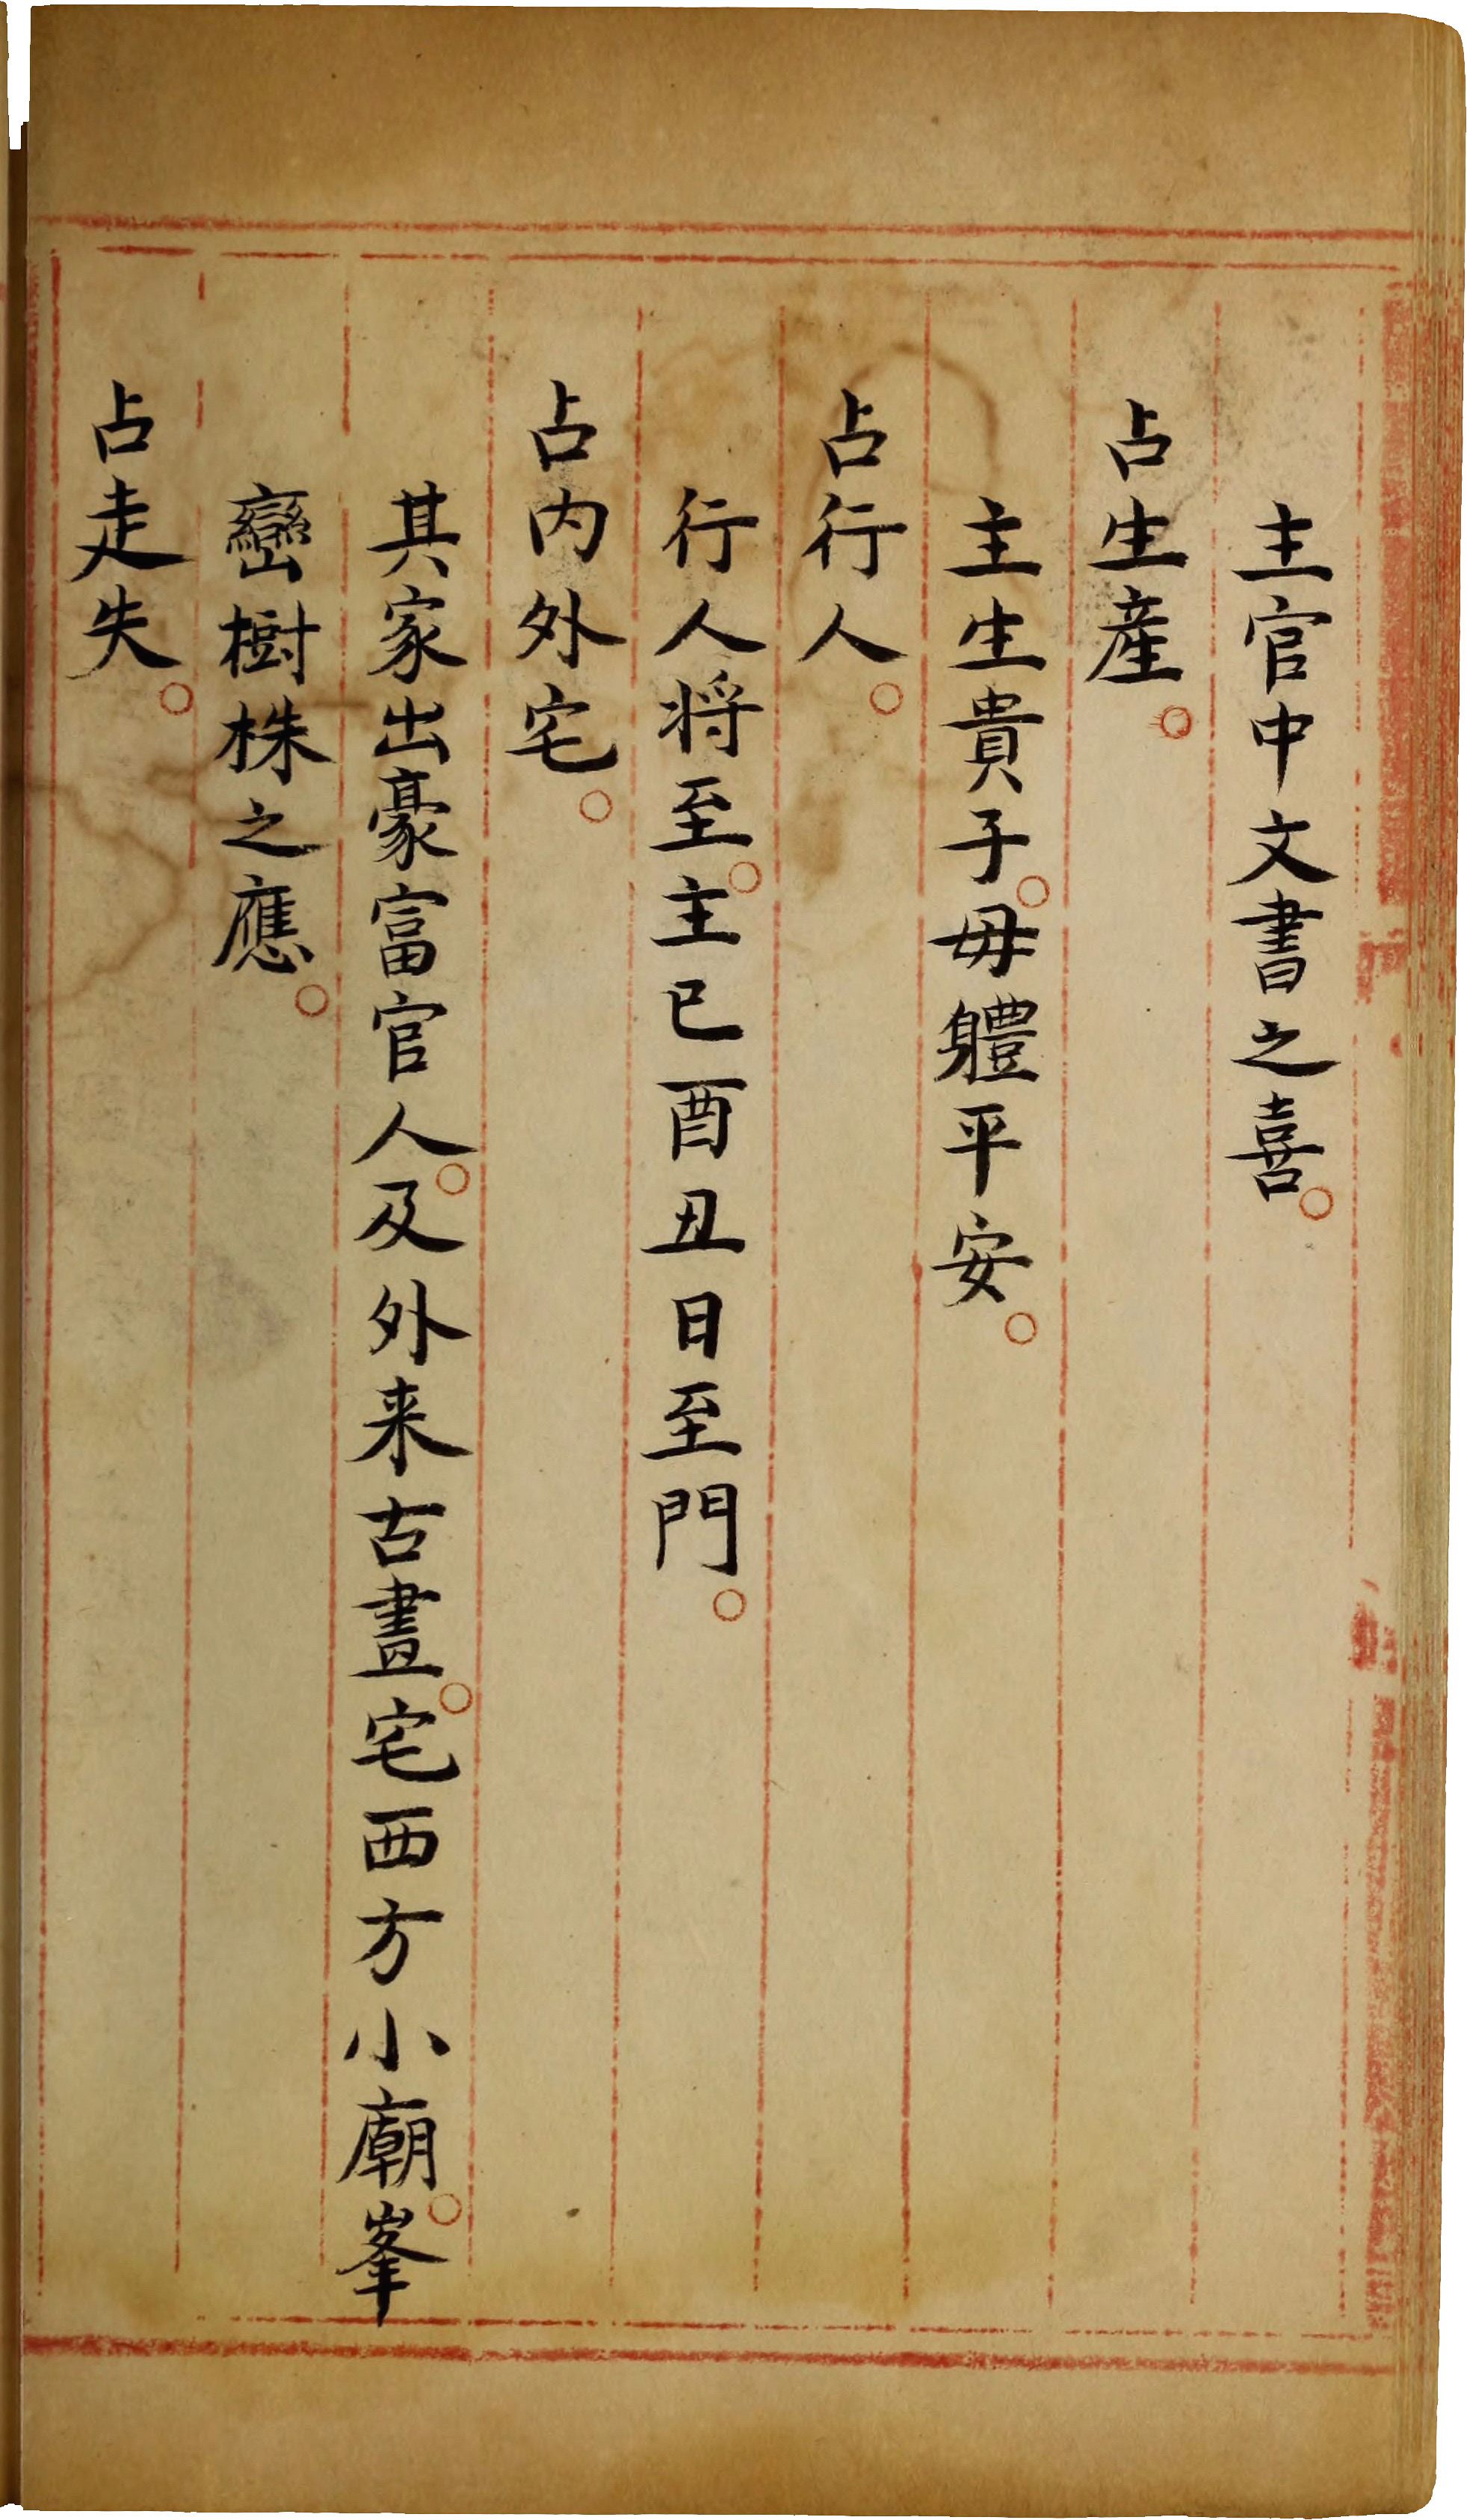 主官中文書之喜。
占生産。
主生貴子。毋軆平安。
占行人。
行人将至。主巳酉丑日至門。
占内外宅。
其家出豪富官人。及外来古畫。宅西方小廟。峯
巒樹株之應。
占走失。